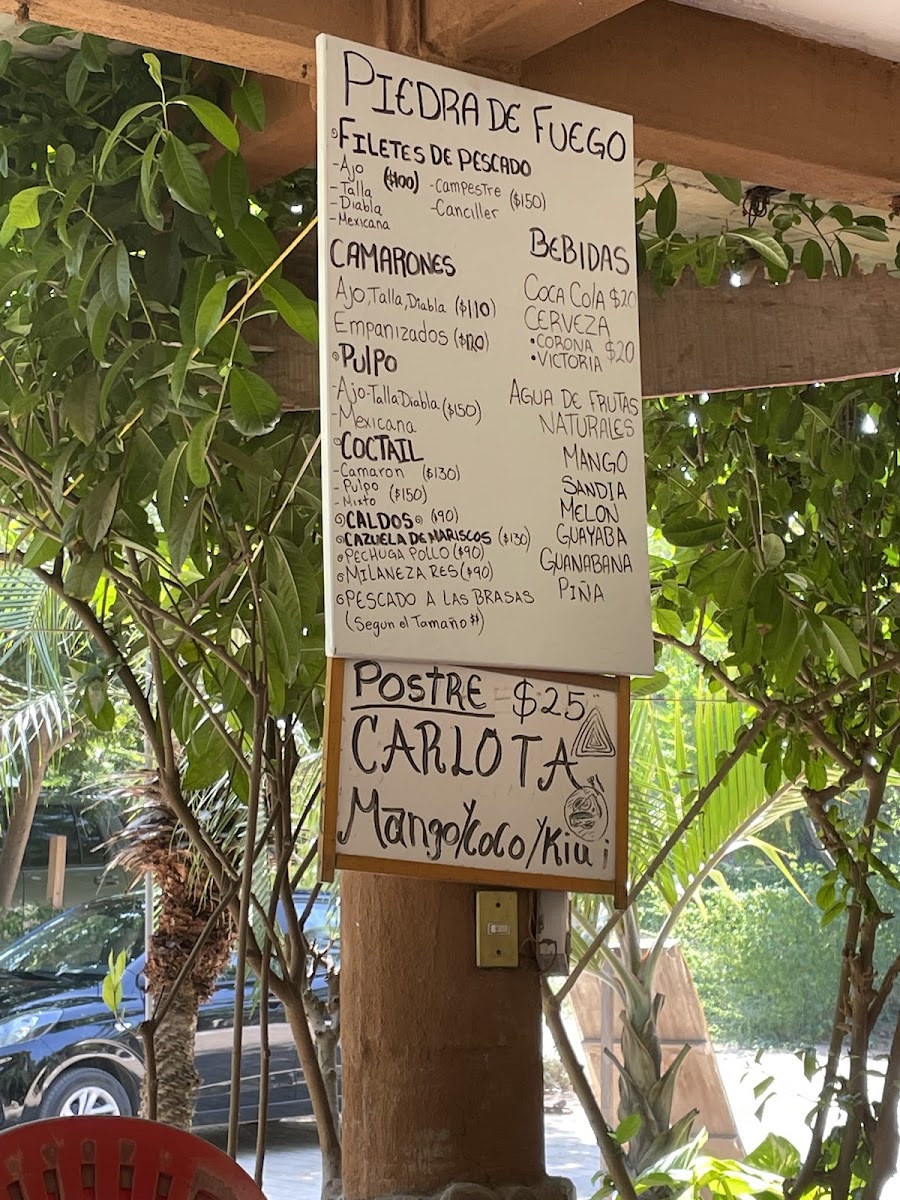 PIEDRA DE FUEGO
FILETES DE PESCADO
-Ajo
-Talla
-Diabla
-Mexicana
($100)
-Campestre
-Canciller
($150)
CAMARONES
Ajo, Talla, Diabla ($110)
Empanizados ($120)
PULPO
-Ajo-Talla Diabla
-Mexicana
($150)
COCTAIL
-Camaron ($130)
-Pulpo
-Mixto
($150)
CALDOS ($90)
CAZUELA DE MARISCOS ($130)
PECHUGA POLLO ($90)
MILANEZA RES ($90)
PESCADO A LAS BRASAS
(Segun el Tamaño $)
BEBIDAS
COCA COLA $20
CERVEZA
•CORONA
•VICTORIA
$20
AGUA DE FRUTAS
NATURALES
MANGO
SANDIA
MELON
GUAYABA
GUANABANA
PIÑA
POSTRE $25
CARLOTA
Mango/Coco/Kiwi